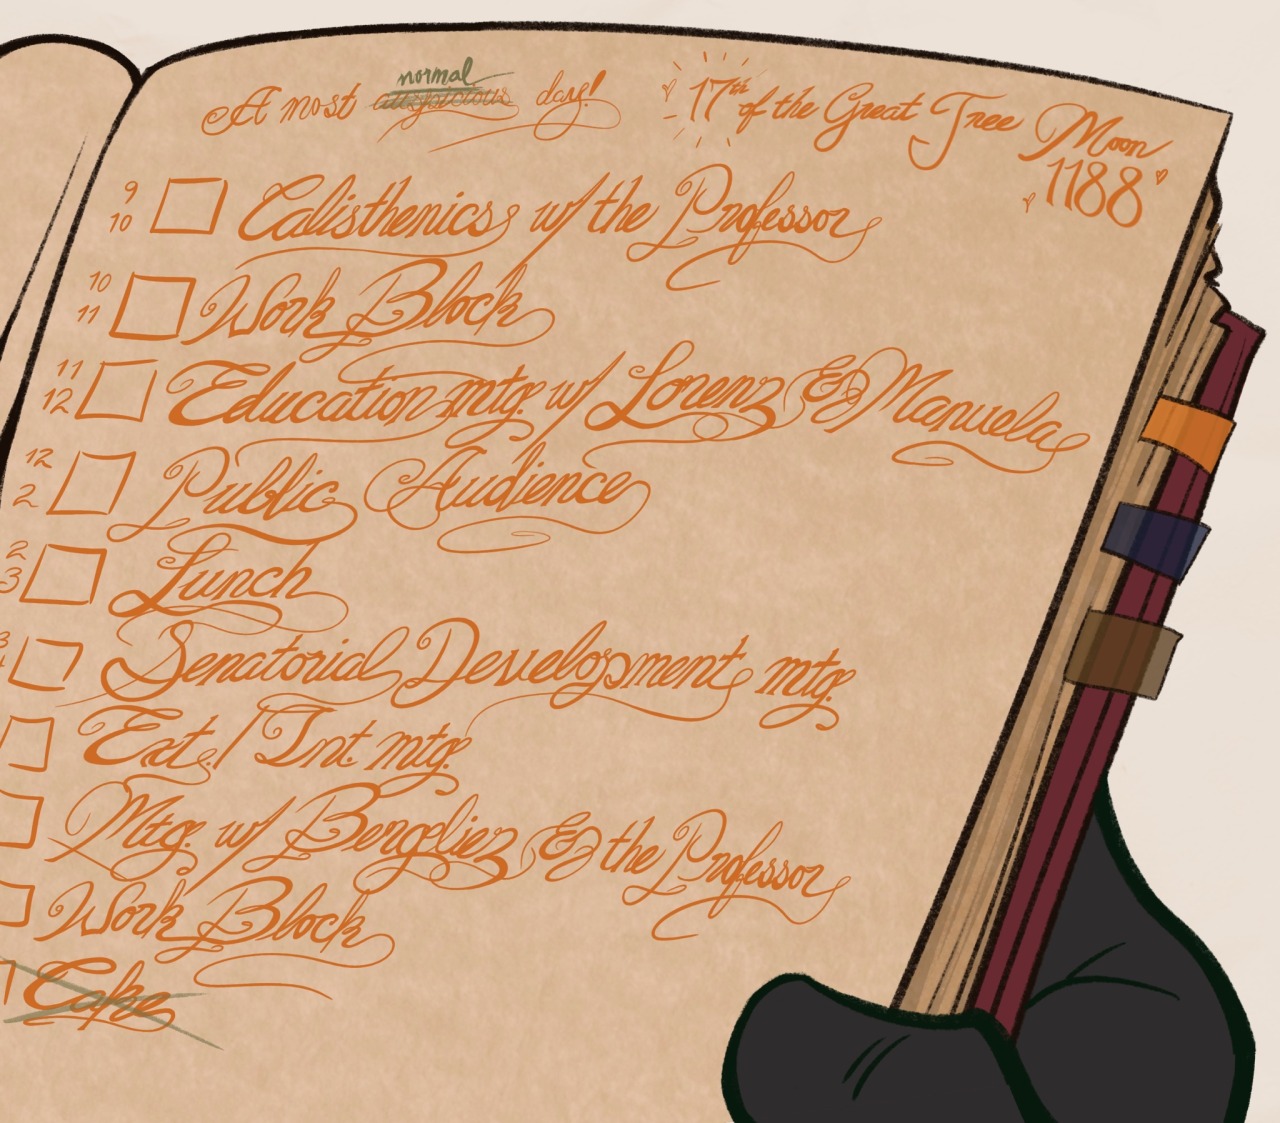 normal
A most auspicious day!
17th of the Great Tree Moon
1188
9
10
Calisthenics w/ the Professor
10
11
Work Block
11
12
Education mtg. w/ Lorenz & Manuela
12
2
Public Audience
2
3
Lunch
3
Senatorial Development mtg.
Ext./Int. mtg.
Mtg. w/ Bergliez & the Professor
Work Block
Cake